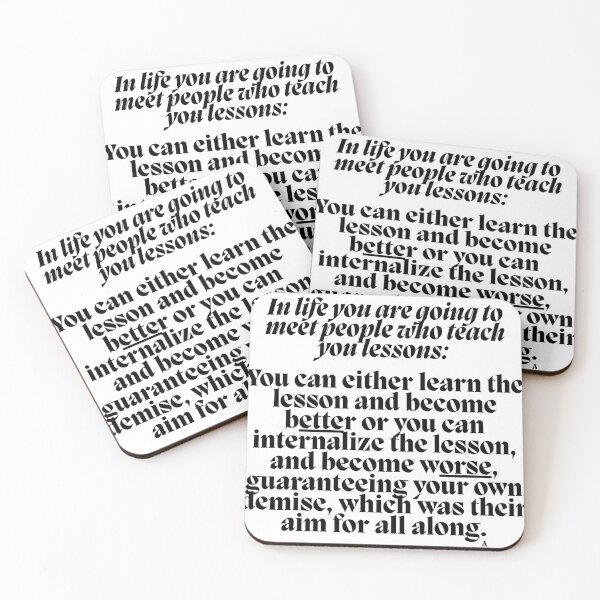 In life you are going to
meet people who teach
you lessons:
You can either learn the
lesson and become
you can
the
In life you are going to
meet people who teach
you lessons:
You can either learn the
lesson and become
better or you can
internalize the lesson,
and become worse,
your own
was their
A
In life you are going to
meet people who teach
you lessons:
You can either learn the
lesson and become
better or you can
internalize the lesson
and become
guaranteeing
demise,
aim for all
In life you are going to
meet people who teach
you lessons:
You can either learn the
lesson and become
better or you can
internalize the lesson,
and become worse,
guaranteeing your own
demise, which was their
aim for all along.
A